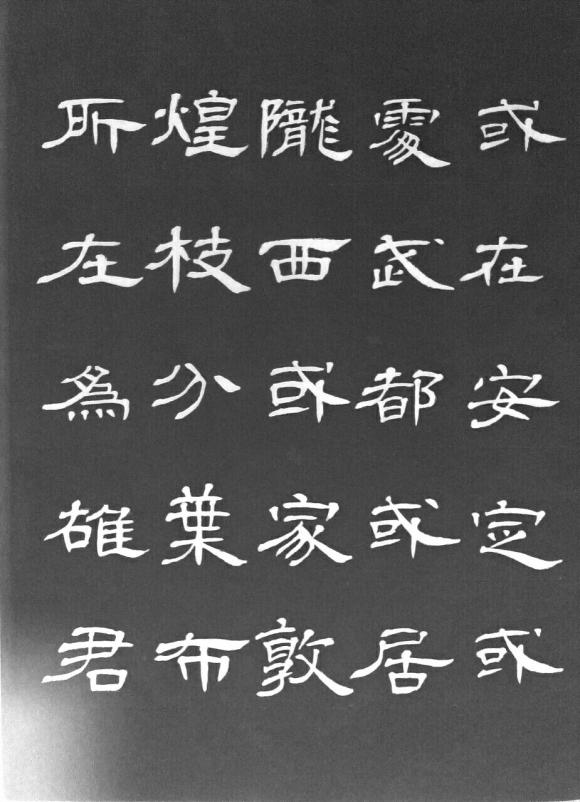 或在安定或
處武都或居
隴西或家敦
煌枝分葉布
所在爲雄君